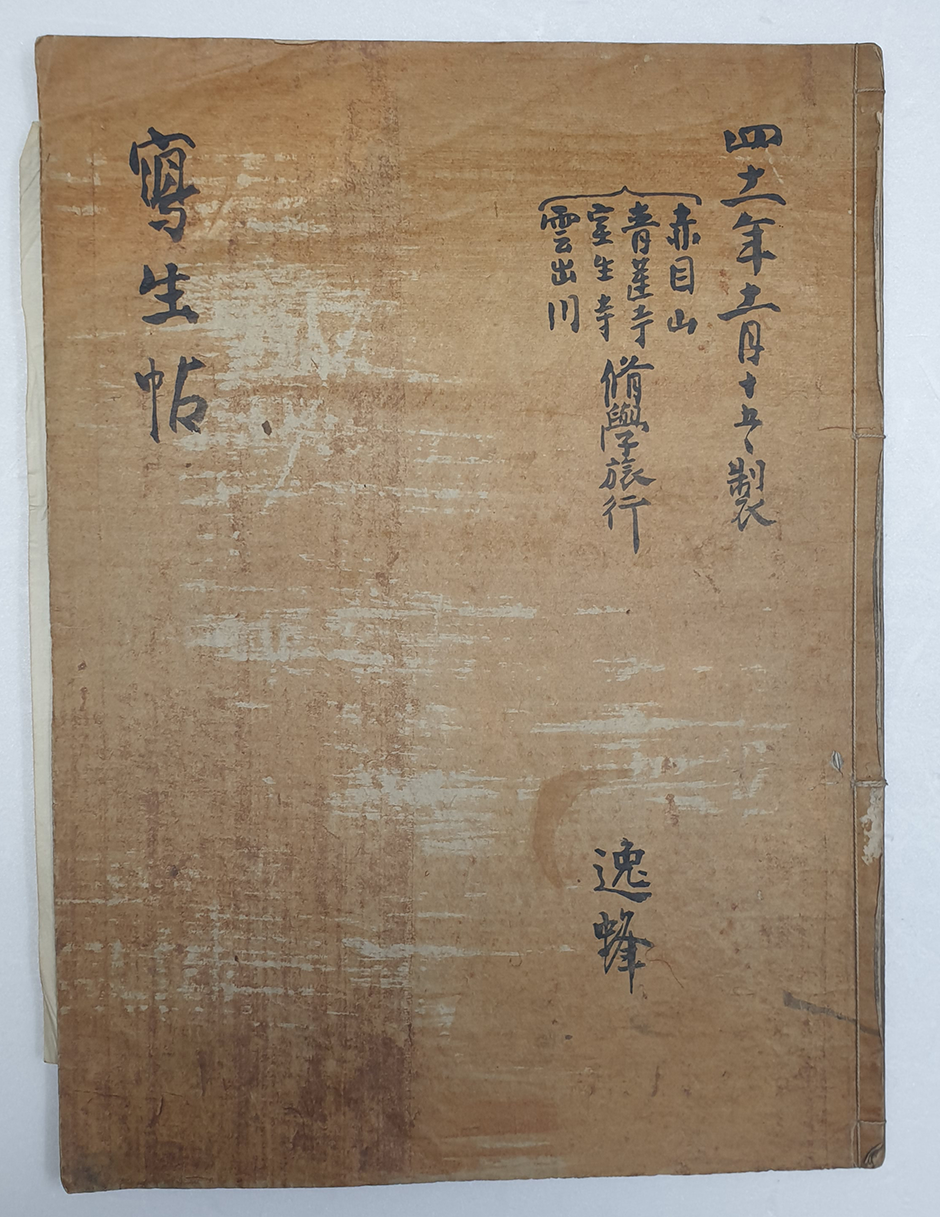 四十一年十一月十五、製
赤目山
青蓮寺
室生寺
雲出川
脩學旅行
逸蜂
寫生帖